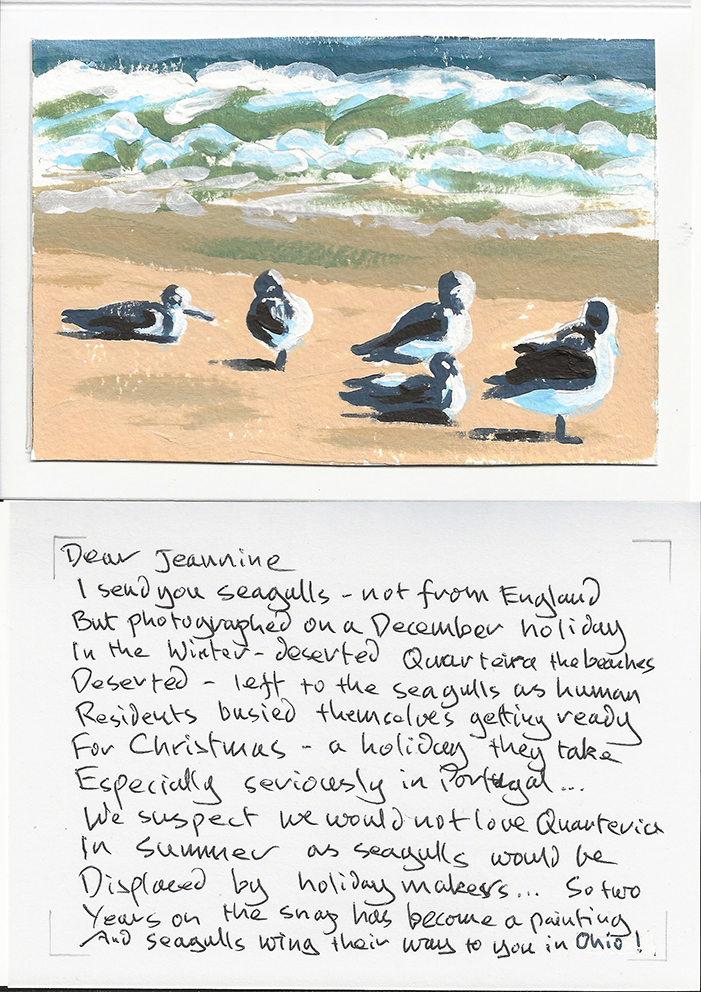 Dear Jeannine
I send you seagulls - not from England
But photographed on a December holiday
In the Winter - deserted Quarteira the beaches
Deserted - left to the seagulls as human
Residents busied themselves getting ready
For Christmas - a holiday they take
Especially seriously in Portugal...
We suspect we would not love Quarteria
In Summer as seagulls would be
Displaced by holiday makers... So two
Years on the snap has become a painting
And seagulls wing their way to you in Ohio!